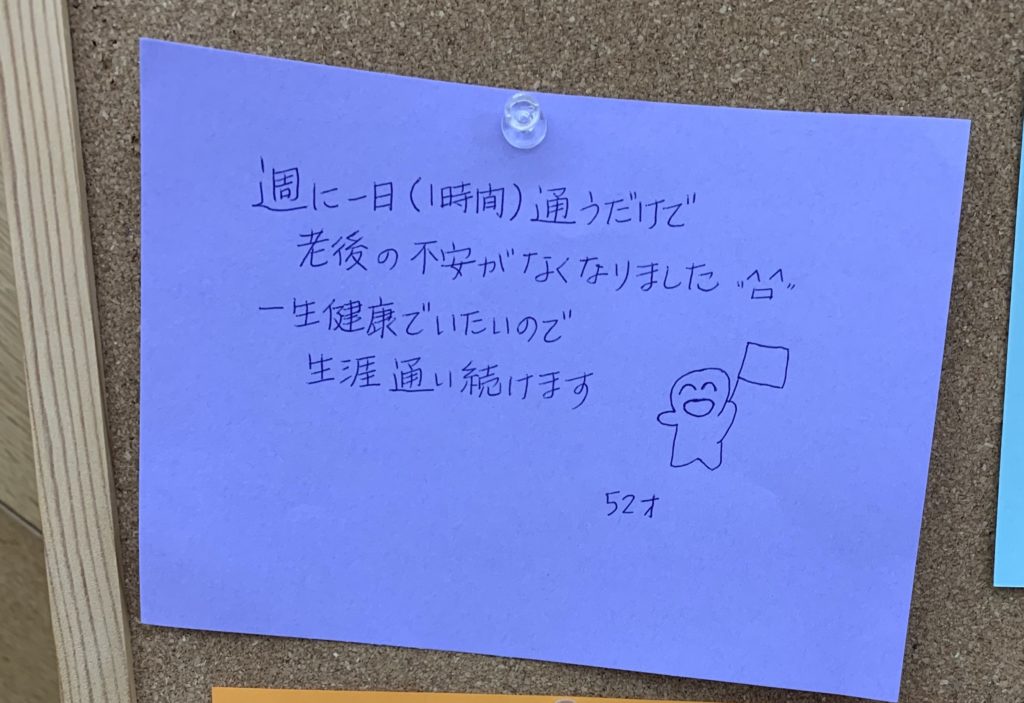 週に一日(1時間)通うだけで
老後の不安がなくなりました
一生健康でいたいので
生涯通い続けます
52才